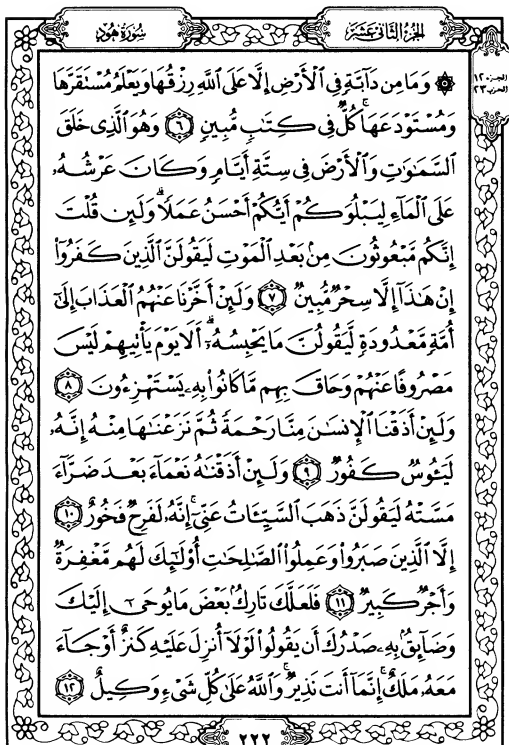 سُورَةُ هُود
الجُزْءُ الثَّانِي عَشَرَ
الجزء ١٢
الحزب ٢٣
۞ وَمَا مِن دَآبَّةٍ فِي ٱلْأَرْضِ إِلَّا عَلَى ٱللَّهِ رِزْقُهَا وَيَعْلَمُ مُسْتَقَرَّهَا
وَمُسْتَوْدَعَهَاۚ كُلٌّ فِي كِتَٰبٍ مُّبِينٍ ٦ وَهُوَ ٱلَّذِي خَلَقَ
ٱلسَّمَٰوَٰتِ وَٱلْأَرْضَ فِي سِتَّةِ أَيَّامٍ وَكَانَ عَرْشُهُۥ
عَلَى ٱلْمَآءِ لِيَبْلُوَكُمْ أَيُّكُمْ أَحْسَنُ عَمَلًاۗ وَلَئِن قُلْتَ
إِنَّكُم مَّبْعُوثُونَ مِنۢ بَعْدِ ٱلْمَوْتِ لَيَقُولَنَّ ٱلَّذِينَ كَفَرُوٓا۟
إِنْ هَٰذَآ إِلَّا سِحْرٌ مُّبِينٌ ٧ وَلَئِنْ أَخَّرْنَا عَنْهُمُ ٱلْعَذَابَ إِلَىٰٓ
أُمَّةٍ مَّعْدُودَةٍ لَّيَقُولُنَّ مَا يَحْبِسُهُۥٓۗ أَلَا يَوْمَ يَأْتِيهِمْ لَيْسَ
مَصْرُوفًا عَنْهُمْ وَحَاقَ بِهِم مَّا كَانُوا۟ بِهِۦ يَسْتَهْزِءُونَ ٨
وَلَئِنْ أَذَقْنَا ٱلْإِنسَٰنَ مِنَّا رَحْمَةً ثُمَّ نَزَعْنَٰهَا مِنْهُ إِنَّهُۥ
لَيَـُٔوسٌ كَفُورٌ ٩ وَلَئِنْ أَذَقْنَٰهُ نَعْمَآءَ بَعْدَ ضَرَّآءَ
مَسَّتْهُ لَيَقُولَنَّ ذَهَبَ ٱلسَّيِّـَٔاتُ عَنِّيٓۚ إِنَّهُۥ لَفَرِحٌ فَخُورٌ ١٠
إِلَّا ٱلَّذِينَ صَبَرُوا۟ وَعَمِلُوا۟ ٱلصَّٰلِحَٰتِ أُو۟لَٰٓئِكَ لَهُم مَّغْفِرَةٌ
وَأَجْرٌ كَبِيرٌ ١١ فَلَعَلَّكَ تَارِكٌۢ بَعْضَ مَا يُوحَىٰٓ إِلَيْكَ
وَضَآئِقٌۢ بِهِۦ صَدْرُكَ أَن يَقُولُوا۟ لَوْلَآ أُنزِلَ عَلَيْهِ كَنزٌ أَوْ جَآءَ
مَعَهُۥ مَلَكٌۚ إِنَّمَآ أَنتَ نَذِيرٌۚ وَٱللَّهُ عَلَىٰ كُلِّ شَيْءٍ وَكِيلٌ ١٢
٢٢٢